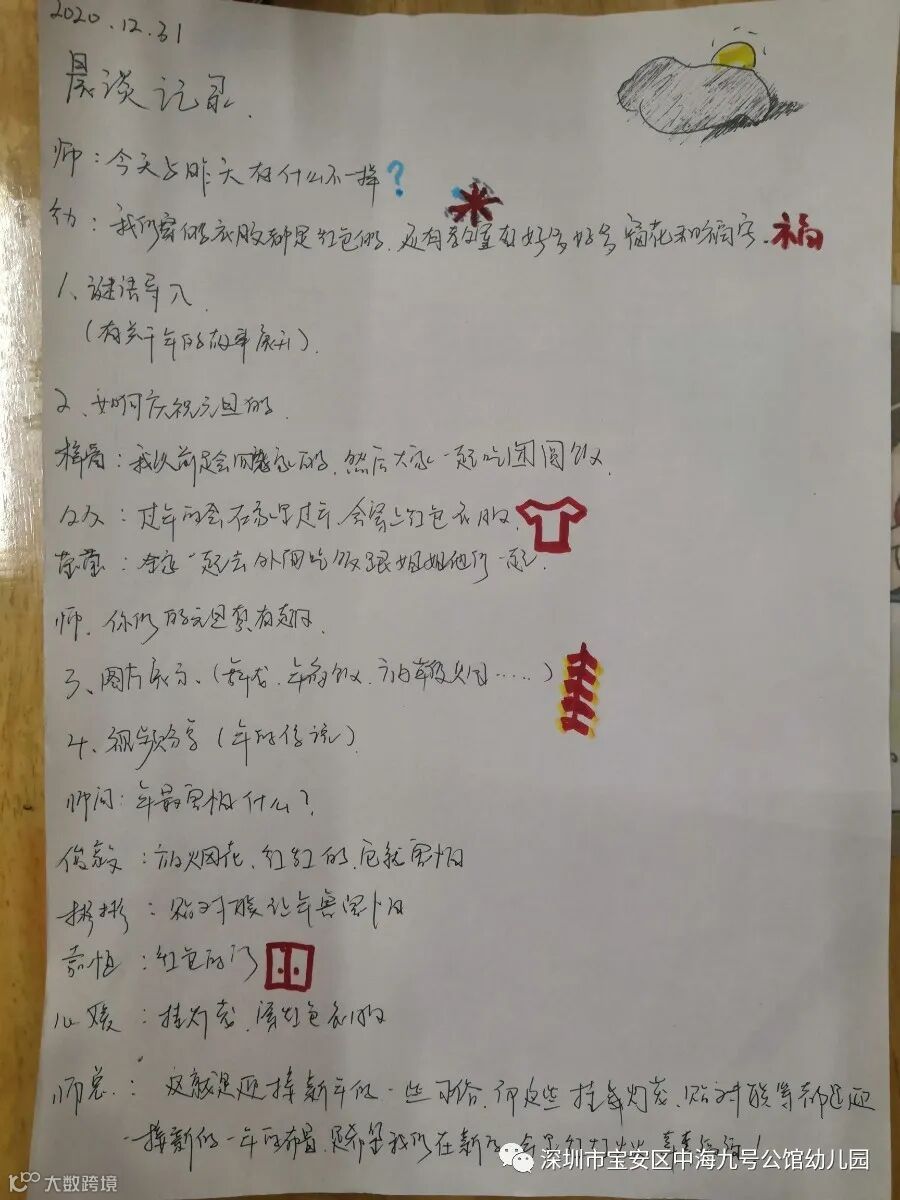 2020.12.31
晨谈记录.
师：今天与昨天有什么不一样？
幼：我们穿的衣服都是红色的，还有教室有好多好多窗花和福字. 福
1、谜语导入
（有关于年的故事展开）.
2、如何庆祝元旦的.
我以前是会回家的，然后大家一起吃团圆饭.
：过年的会在家里过年，会穿上红色衣服.
莹莹：全家一起去外面吃饭跟姐姐他们一起.
师、你们的元旦真有趣.
3、图片展示、（舞龙、年夜饭、放鞭炮……）
4、视频分享（年的传说）.
师问：年最害怕什么？
俊毅：放烟花、红红的，它就害怕
彬彬：贴对联让年兽害怕
嘉恒：红色的门
心媛：挂灯笼，穿红色衣服
师总：这就是迎接新年的一些习俗，这些挂灯笼、贴对联等都是迎
接新的一年的布置，是希望我们在新的
深圳市宝安区中海九号公馆幼儿园
大数跨境